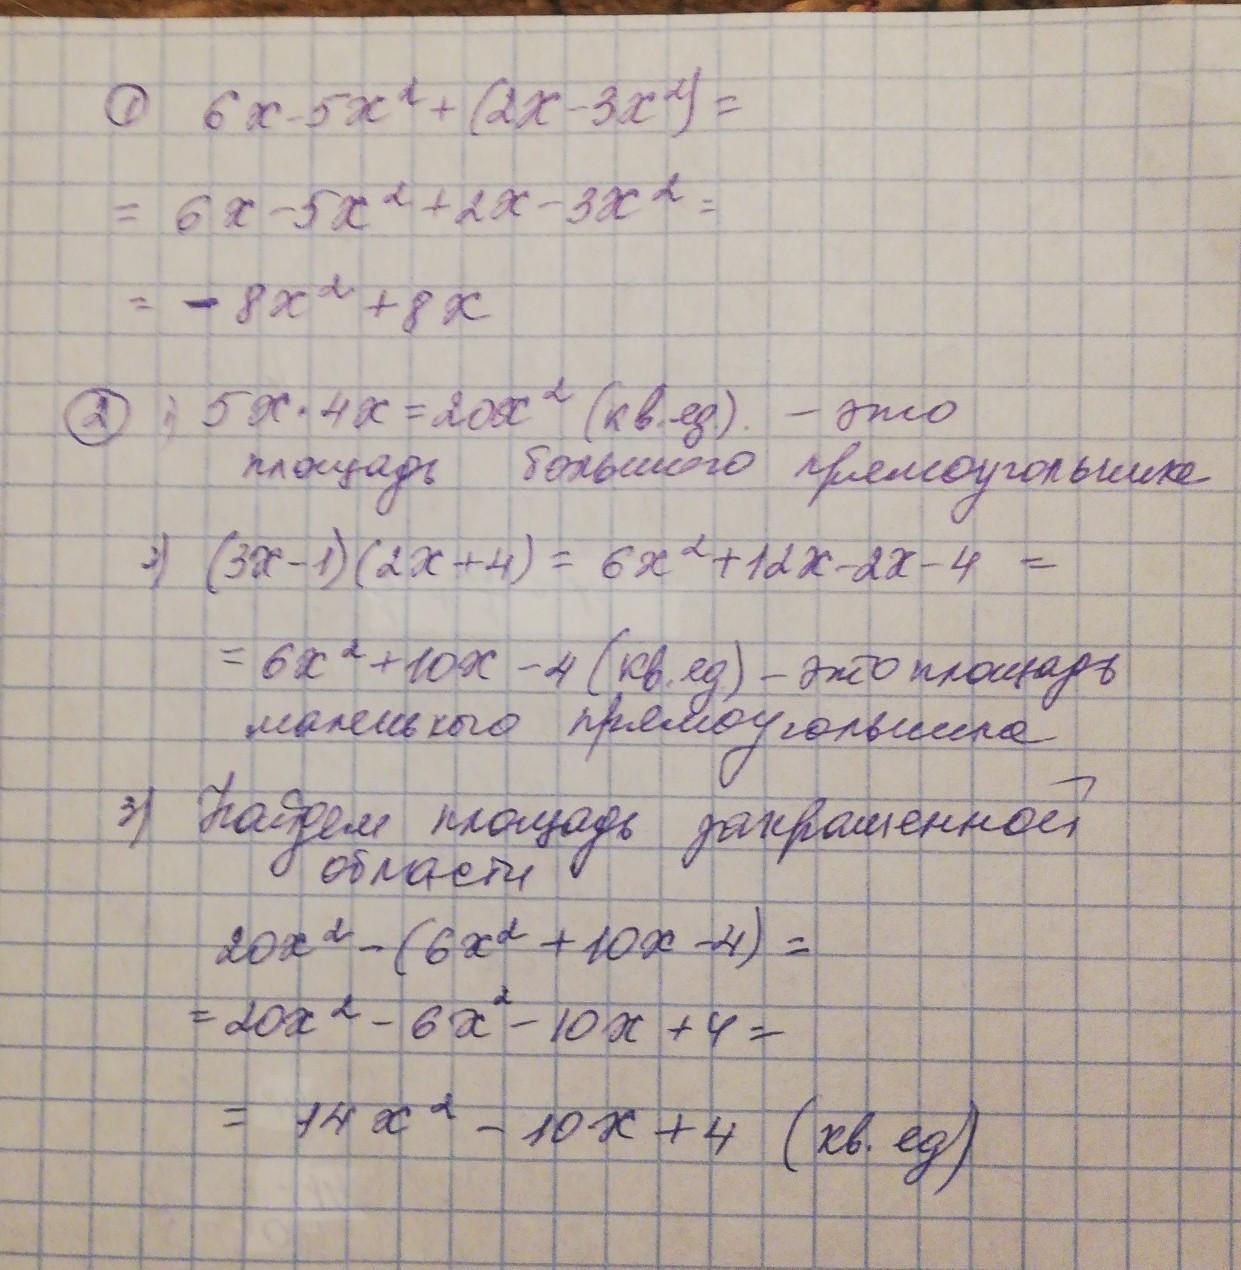 ① 6x-5x²+(2x-3x²)=
= 6x-5x²+2x-3x²=
= -8x²+8x
② 1) 5x·4x=20x² (кв.ед). - это
площадь большого прямоугольника
2) (3x-1)(2x+4)= 6x²+12x-2x-4 =
= 6x²+10x-4 (кв.ед) - это площадь
маленького прямоугольника
3) Найдем площадь закрашенной
области
20x²-(6x²+10x-4)=
=20x²-6x²-10x+4=
= 14x²-10x+4 (кв. ед)